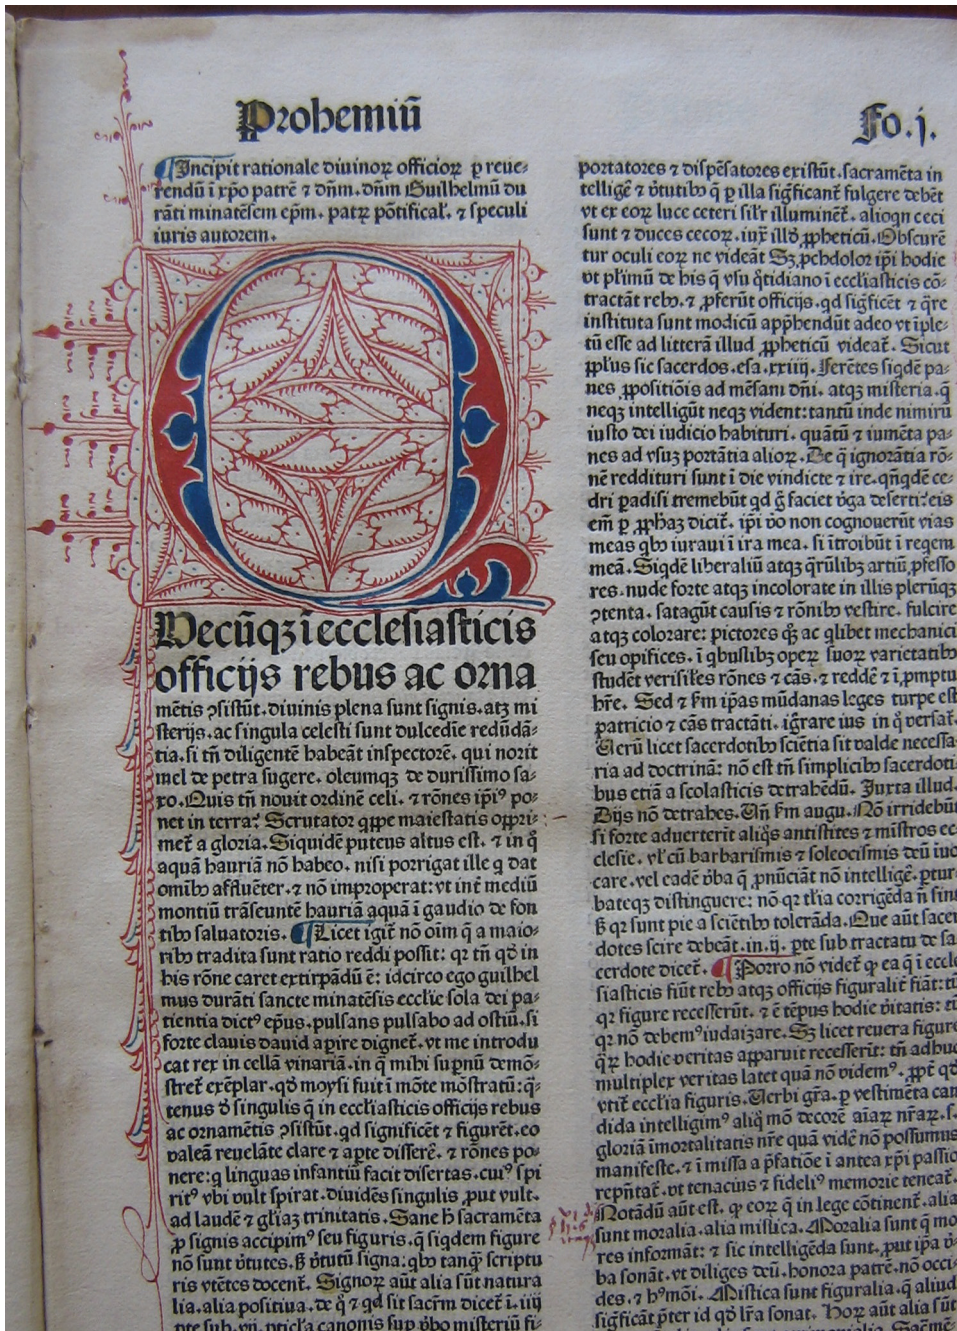 Prohemiū
Fo.j.
¶Incipit rationale diuinoꝝ officioꝝ ꝑ reue⸗
rendū ī xp̄o patrē ⁊ dn̄m. dn̄m Guilhelmū du
rāti minatēsem ep̄m. patꝝ pōtifical'. ⁊ speculi
iuris autorem.
Q
Uecūqꝫ ī ecclesiasticis
officijs rebus ac orna
mētis ꝯsistūt. diuinis plena sunt signis. atꝫ mi
sterijs. ac singula celesti sunt dulcedīe redūdā⸗
tia. si tn̄ diligentē habeāt inspectorē. qui norit
mel de petra sugere. oleumqꝫ de durissimo sa⸗
xo. Quis tn̄ nouit ordinē celi. ⁊ rōnes ip̄iꝰ po⸗
net in terra? Scrutator qꝑpe maiestatis oppri⸗
met̄ a gloria. Siquidē puteus altus est. ⁊ in q̊
aquā hauriā nō habeo. nisi porrigat ille q dat
omībꝰ affluēter. ⁊ nō improperat: vt int̄ mediū
montiū trāseuntē hauriā aquā ī gaudio de fon
tibꝰ saluatoris. ¶Licet igit̄ nō oīm q̄ a maio⸗
ribꝰ tradita sunt ratio reddi possit: qꝛ tn̄ qd̄ in
his rōne caret extirpādū ē: idcirco ego guilhel
mus durāti sancte minatēsis eccl'ie sola dei pa⸗
tientia dictꝰ ep̄us. pulsans pulsabo ad ostiū. si
forte clauis dauid aꝑire dignet̄. vt me introdu
cat rex in cellā vinariā. in q̄ mihi sup̄nū demō⸗
stret̄ exēplar. qd̄ moysi fuit ī mōte mōstratū: q̄⸗
tenus d̄ singulis q̄ in eccl'iasticis officijs rebus
ac ornamētis ꝯsistūt. qd significēt ⁊ figurēt. eo
valeā reuelāte clare ⁊ aꝑte disserē. ⁊ rōnes po⸗
nere: q linguas infantiū facit disertas. cuiꝰ spi
ritꝰ vbi vult spirat. diuidēs singulis ꝓut vult.
ad laudē ⁊ gl'iaꝫ trinitatis. Sane h̄ sacramēta
ꝓ signis accipimꝰ seu figuris. q̄ siqdem figure
nō sunt v̄tutes. sꝫ v̄tutū signa: qbꝰ tanq̄ scriptu
ris vtētes docent̄. Signoꝝ aūt alia sūt natura
lia. alia positiua. de q̊ ⁊ qd sit sacrm̄ dicet̄ ī. iiij
pte sub. vij. pticl'a canonis suꝑ v̄bo misteriū fi⸗
portatores ⁊ dispēsatores existūt. sacramēta in
telligē ⁊ v̄tutibꝰ q̄ ꝑ illa sigficant̄ fulgere debēt
vt ex eoꝝ luce ceteri sil'r illuminēt̄. alioqn ceci
sunt ⁊ duces cecoꝝ. iux̄ illd̄ ꝓpheticū. Obscurē
tur oculi eoꝝ ne videāt Sꝫ ꝓchdoloꝛ ip̄i hodie
vt pl'imū de his q̄ vsu q̄tidiano ī eccl'iasticis cō⸗
tractāt rebꝰ. ⁊ ꝓferūt officijs. qd sigficēt ⁊ q̄re
instituta sunt modicū app̄hendūt adeo vt īple⸗
tū esse ad litterā illud ꝓpheticū videat̄. Sicut
ppl'us sic sacerdos. esa. xxiiij. Ferētes siqdē pa⸗
nes ꝓpositiōis ad mēsam dn̄i. atqꝫ misteria. q̄
neqꝫ intelligūt neqꝫ vident: tantū inde nimirū
iusto dei iudicio habituri. quātū ⁊ iumēta pa⸗
nes ad vsuꝫ portātia alioꝝ. De q̄ ignorātia rō⸗
nē reddituri sunt ī die vindicte ⁊ ire. qn̄qdē ce⸗
dri padisi tremebūt qd ḡ faciet v̄ga deserti: eis
em̄ ꝑ ꝓphaꝫ dicit̄. ip̄i v̄o non cognouerūt vias
meas qbꝰ iuraui ī ira mea. si ītroibūt ī reqem
meā. Siqdē liberaliū atqꝫ q̄rūlibꝫ artiū ꝓfesso
res. nude forte atqꝫ incolorate in illis plerūqꝫ
ꝯtenta. satagūt causis ⁊ rōnibꝰ vestire. fulcire
atqꝫ colorare: pictores qꝫ ac qlibet mechanici
seu opifices. ī qbuslibꝫ operꝝ suoꝝ varietatibꝰ
studēt verisil'es rōnes ⁊ cās. ⁊ reddē ⁊ ī ꝓmptu
hr̄e. Sed ⁊ km̄ ip̄as mūdanas leges turpe est
patricio ⁊ cās tractāti. igrāre ius in q̊ versat̄.
Uerū licet sacerdotibꝰ sciētia sit valde necessa⸗
ria ad doctrinā: nō est tn̄ simplicibꝰ sacerdoti
bus etiā a scolasticis detrahēdū. Iuxta illud.
Dijs nō detrahes. Un̄ km̄ augu. Nō irridebūt
si forte aduerterit aliq̊s antistites ⁊ mīstros ec
clesie. vl' cū barbarismis ⁊ soleocismis deū iuo
care. vel eadē v̄ba q̄ ꝓnūciāt nō intelligē. ꝑtur
bateqꝫ distinguere: nō qꝛ tl'ia corrigēda n̄ sint
sꝫ qꝛ sunt pie a sciētibꝰ tolerāda. Que aūt sacer
dotes scire debeāt. in. ij. ꝑte sub tractatu de sa⸗
cerdote dicet̄. ¶Porro nō videt̄ ꝙ ea q̄ ī eccle
siasticis fiūt rebꝰ atqꝫ officijs figuralit̄ fiāt: tū
qꝛ figure recesserūt. ⁊ ē tēpus hodie v̄itatis: tū
qꝛ nō debemꝰ iudaizare. Sꝫ licet reuera figure
q̄ꝝ hodie veritas apparuit recesserīt: tn̄ adhuc
multiplex veritas latet quā nō videmꝰ. ꝓpt̄ qd̄
vtit̄ eccl'ia figuris. Uerbi gr̄a. ꝑ vestimēta can
dida intelligimꝰ aliq̊ mō decorē aīaꝝ nr̄aꝝ. s.
gloriā īmortalitatis nr̄e quā vidē nō possumus
manifeste. ⁊ ī missa a p̄fatiōe ī antea xp̄i passio
rep̄ntat̄. vt tenacius ⁊ fideliꝰ memorie teneat̄.
Notādū aūt est. ꝙ eoꝝ q̄ in lege cōtinent̄. alia
sunt moralia. alia mistica. Moralia sunt q̄ mo
res informāt: ⁊ sic intelligēda sunt. ꝓut ip̄a v̄⸗
ba sonāt. vt diliges deū. honora patrē. nō occi⸗
des. ⁊ hꝰmōi. Mistica sunt figuralia. q̄ aliud
sigficāt p̄ter id qd̄ lr̄a sonat. Hoꝝ aūt alia sūt